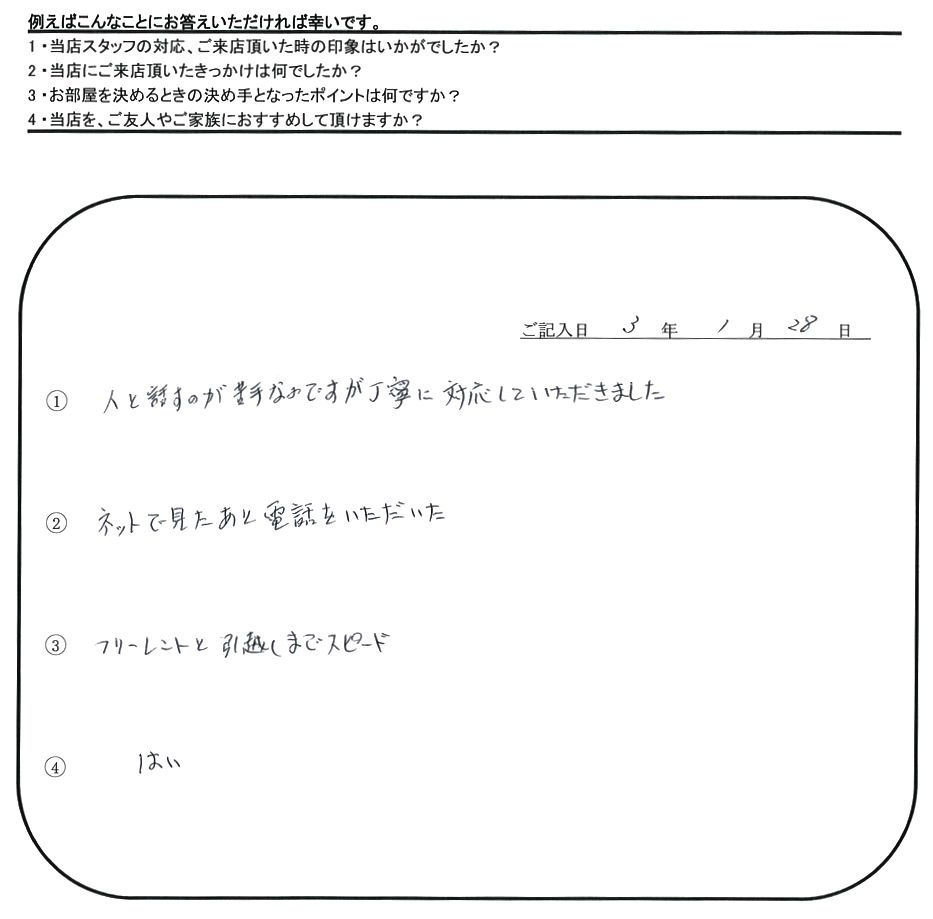 例えばこんなことにお答えいただければ幸いです。
1・当店スタッフの対応、ご来店頂いた時の印象はいかがでしたか？
2・当店にご来店頂いたきっかけは何でしたか？
3・お部屋を決めるときの決め手となったポイントは何ですか？
4・当店を、ご友人やご家族におすすめして頂けますか？
ご記入日 3 年 1 月 28 日
① 人と話すのが苦手なのですが丁寧に対応していただきました
② ネットで見たあと電話をいただいた
③ フリーレントと引越しまでスピード
④ はい